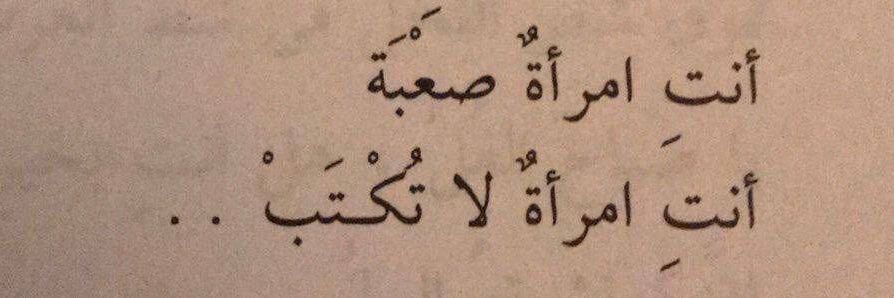 أنتِ امرأةٌ صعْبَةَ
أنتِ امرأةٌ لا تُكْتَبْ ..